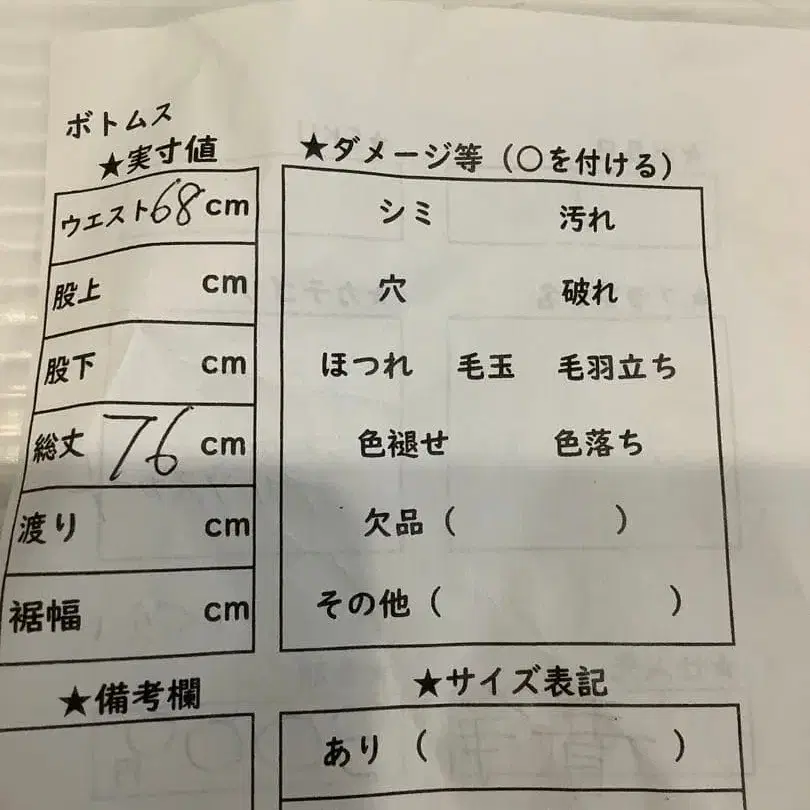 ボトムス
★実寸値
ウエスト68cm
股上 cm
股下 cm
総丈 76 cm
渡り cm
裾幅 cm
★備考欄
★ダメージ等（○を付ける）
シミ 汚れ
穴 破れ
ほつれ 毛玉 毛羽立ち
色褪せ 色落ち
欠品（ ）
その他（ ）
★サイズ表記
あり（ ）